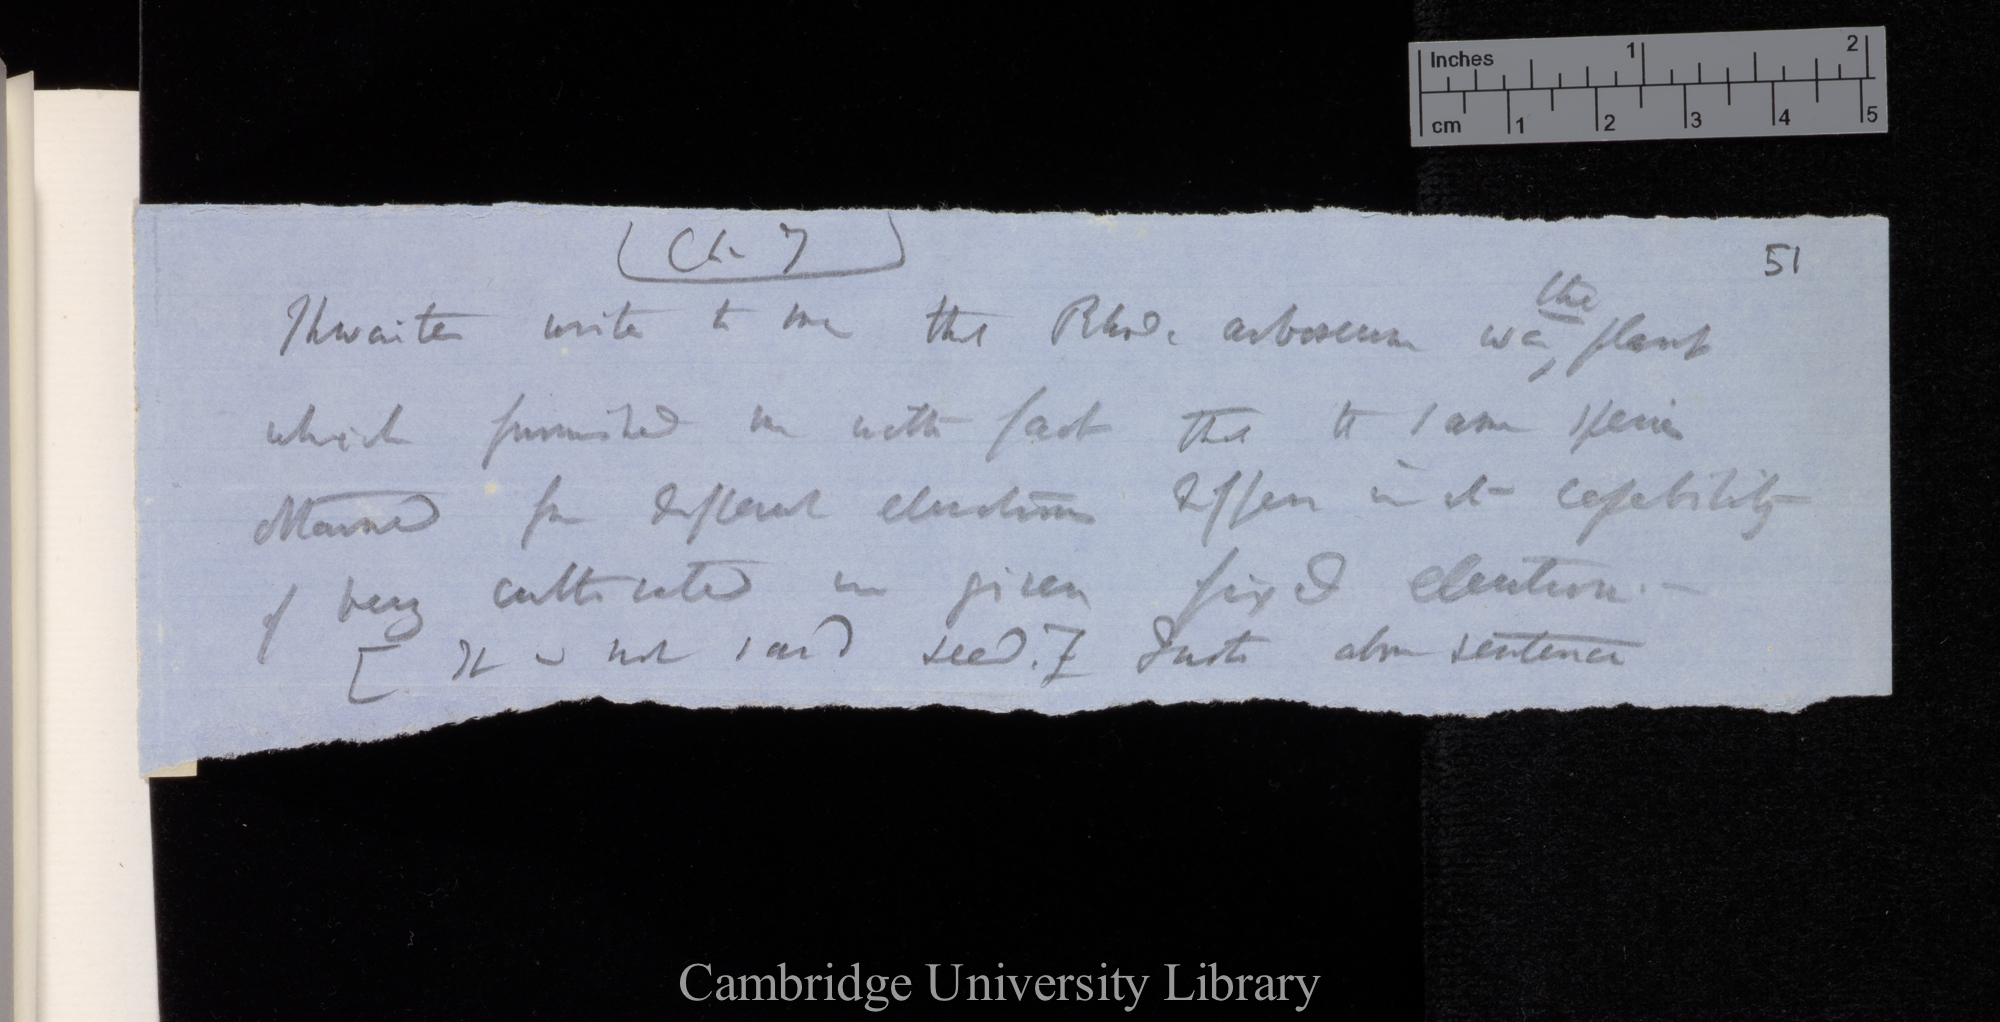 Inches 1 2
cm 1 2 3 4 5
(Ch. 7)
51
Thwaites write to me that Rhod. arboreum was the plant
which furnished me with fact that the same species
obtained from different elevations differs in its capability
of being cultivated on given fixed elevation. —
[It is not said seed.] Quote above sentence
Cambridge University Library